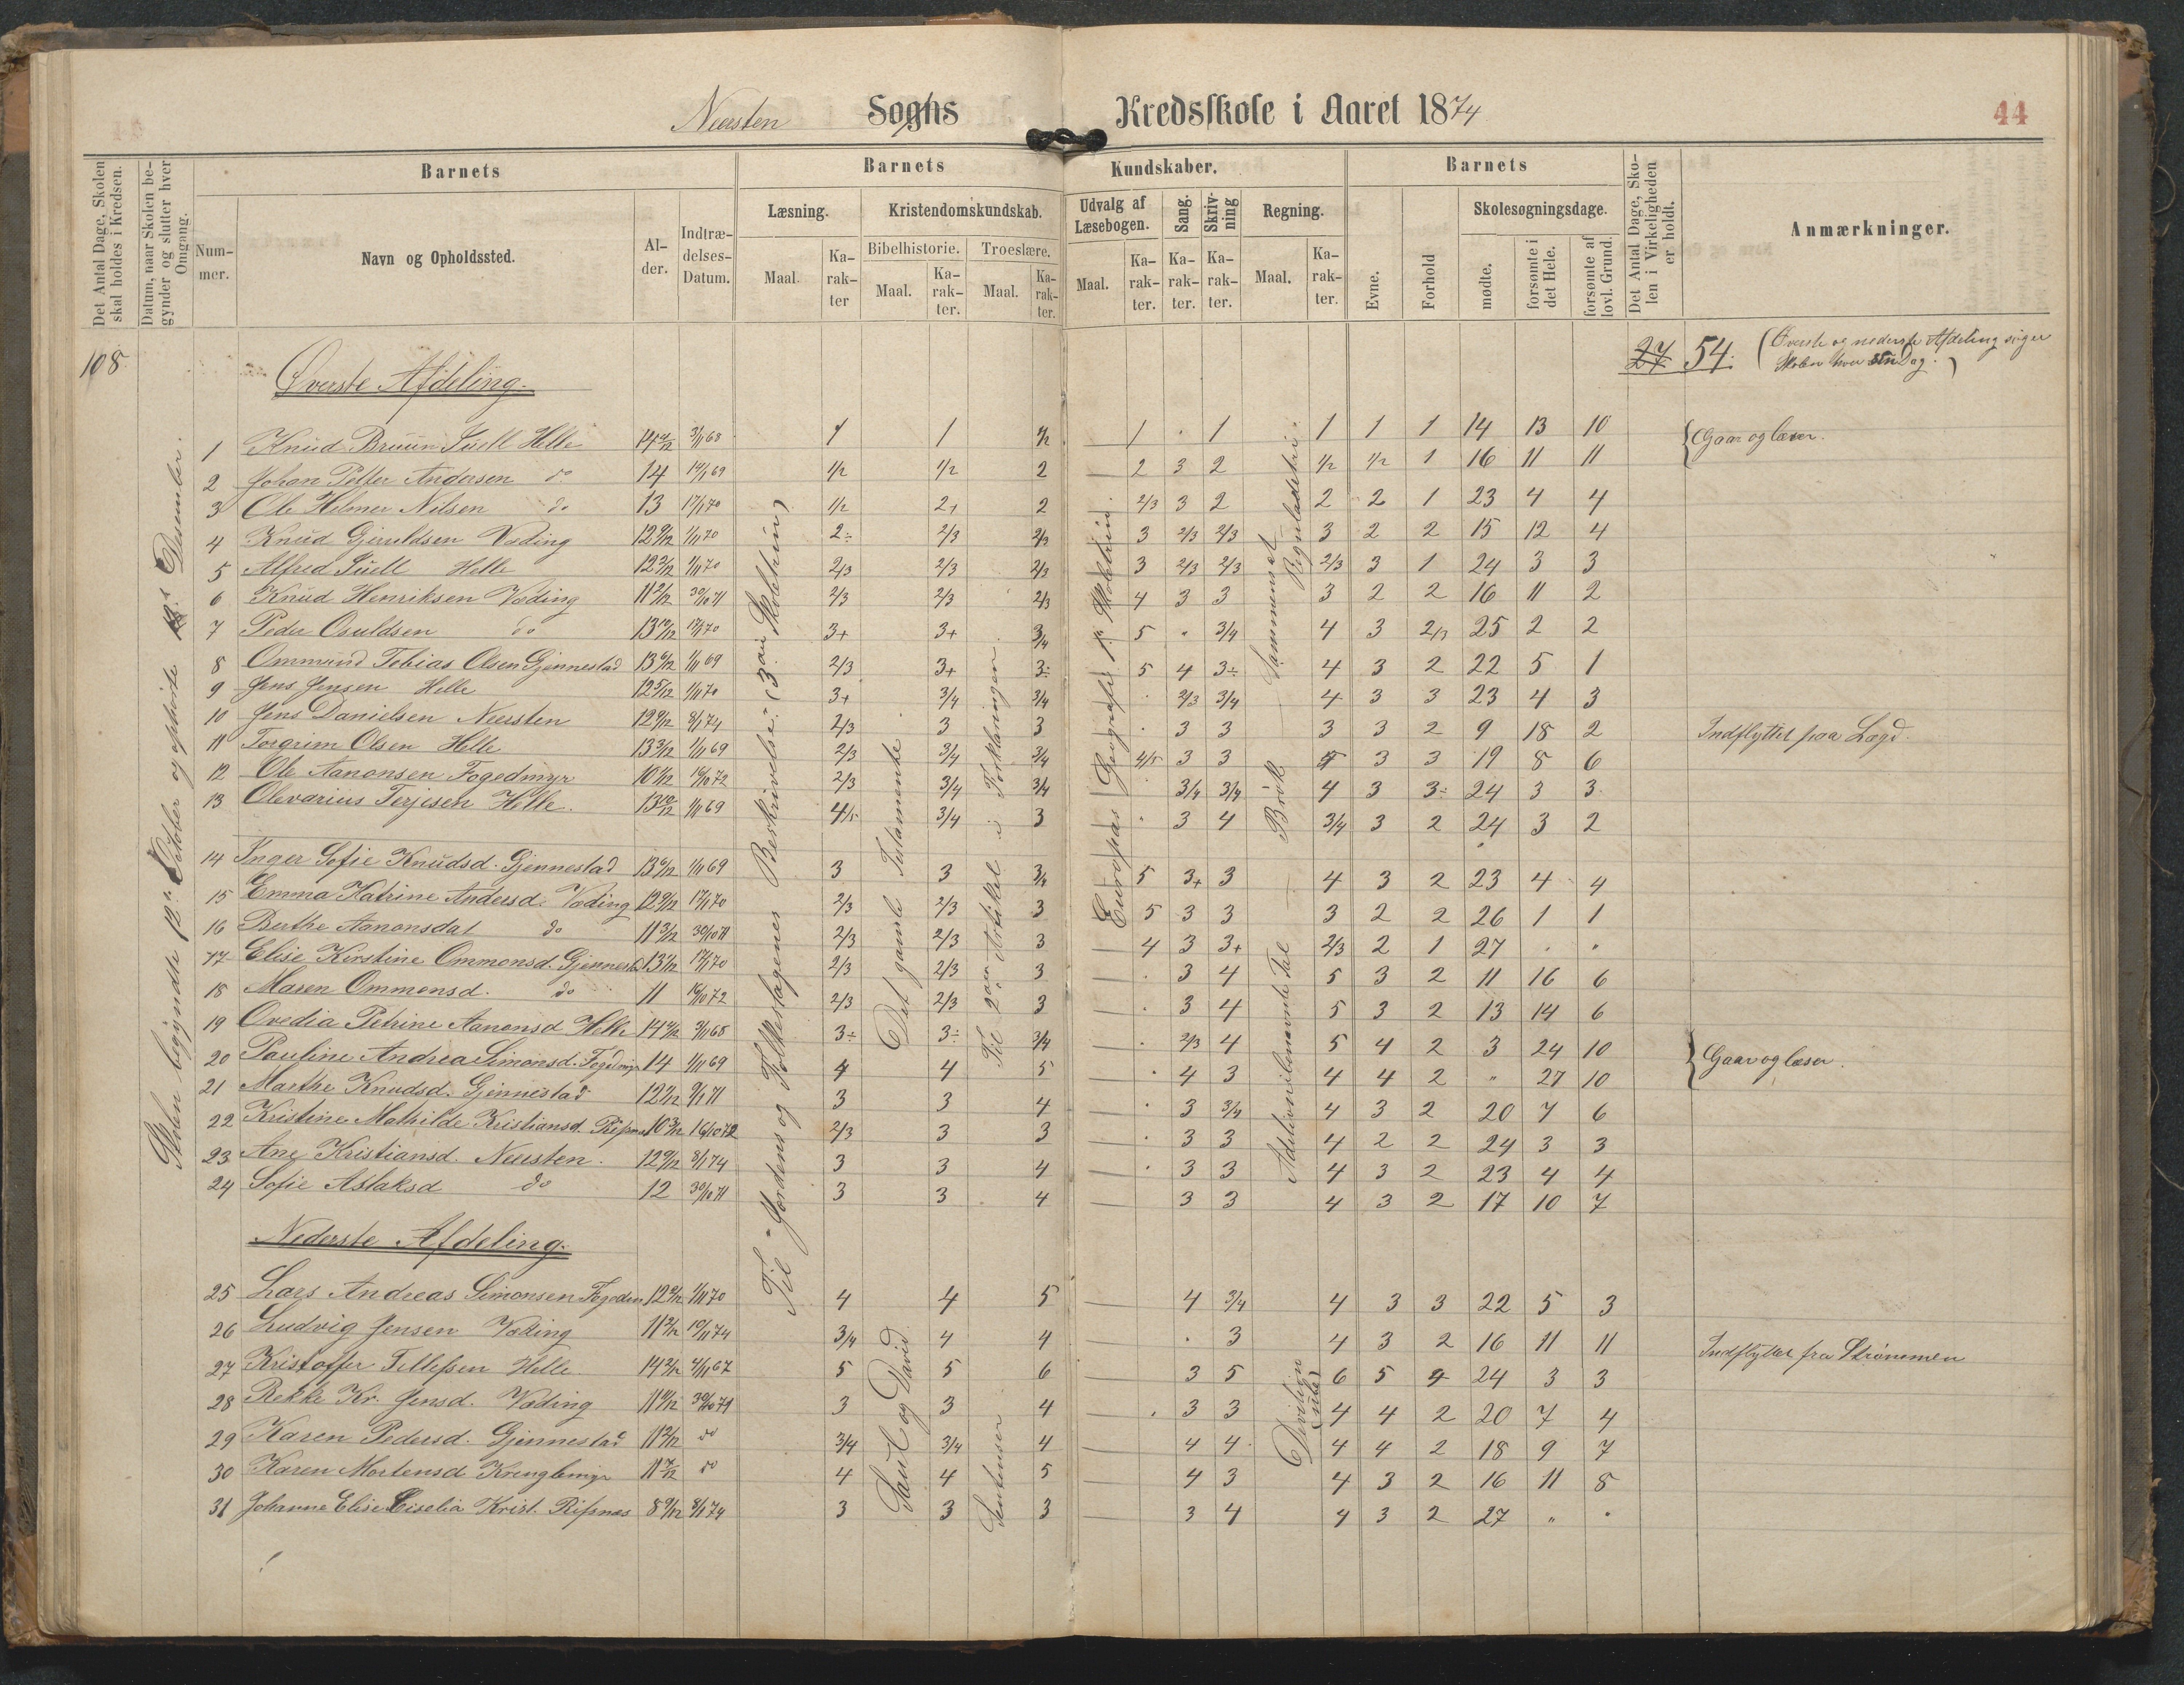 Neersten Soghs Kredsskole i Aaret 1874
44
Det Antal Dage, Skolen skal holdes i Kredsen.
Datum, naar Skolen begynder og slutter hver Omgang.
Barnets
Nummer.
Navn og Opholdssted.
Alder.
Indtrædelses-Datum.
Barnets Kundskaber.
Læsning.
Maal.
Karakter
Kristendomskundskab.
Bibelhistorie.
Maal.
Karakter.
Troeslære.
Maal.
Karakter.
Udvalg af Læsebogen.
Maal.
Karakter.
Sang.
Karakter.
Skrivning
Karakter.
Regning.
Maal.
Karakter.
Barnets
Evne.
Forhold
Skolesøgningsdage.
mødte.
forsømte i det Hele.
forsømte af lovl. Grund.
Det Antal Dage, Skolen i Virkeligheden er holdt.
Anmærkninger.
108
27 54. (Øverste og nederste Afdeling søger
Skolen hver sin Dag.)
Skolen begyndte 12te October og ophørte Desember.
Til "Jordens og Folkeslagenes Beskrivelse." (3die Skoletrin)
Det gamle Testamente.
Til 2den Artikel i Forklaringen
Europas Geografi Skoletrin.
Brøk
Sammensat Reguladetri.
Addition i ubenævnte Tal
Øverste Afdeling.
1 Knud Bruun Juell Helle 14 3/11 68 1 1 1/2 1 1 1 1 1 14 13 10 Gaar og læser.
2 Johan Petter Andersen do 14 1/2 1/2 2 2 3 2 1/2 1/2 1 16 11 11
3 Ole Helmer Nilsen do 13 17/1 70 1/2 2+ 2 2/3 3 2 2 2 1 23 4 4
4 Knud Gjeruldsen Væding 12 1/11 70 2÷ 2/3 2/3 3 2/3 2/3 3 2 2 15 12 4
5 Alfred Juell Helle 12 1/11 70 2/3 2/3 2/3 3 2/3 2/3 2/3 3 1 24 3 3
6 Knud Henriksen Væding 11 30/10 71 2/3 2/3 2/3 4 3 3 3 2 2 16 11 2
7 Peder Osuldsen do 13 10/12 17/1 70 3+ 3+ 3/4 5 3/4 4 3 2/3 25 2 2
8 Ommund Tobias Olsen Gjennestad 13 1/11 69 2/3 3+ 3÷ 5 4 3÷ 4 3 2 22 5 1
9 Jens Jensen Helle 12 5/12 1/11 70 3+ 3/4 3/4 2/3 3/4 4 3 3 23 4 3
10 Jens Danielsen Neersten 12 8/1 74 2/3 3 3 3 3 3 3 2 9 18 2 Indflyttet paa Lægd.
11 Torgrim Olsen Helle 13 1/11 69 2/3 3/4 3/4 4/5 3 3 3 3 19 8 6
12 Ole Aanonsen Fogedmyr 10 16/10 72 2/3 3/4 3/4 3/4 3/4 4 3 3÷ 24 3 3
13 Olevarius Terjesen Helle. 13 10/12 1/11 69 4/5 3/4 3 3 4 3/4 3 2 24 3 2
14 Inger Sofie Knudsd. Gjennestad 13 1/11 69 3 3 3/4 5 3+ 3 4 3 2 23 4 4
15 Emma Katrine Andersd. Væding 12 17/1 70 2/3 2/3 3 5 3 3 3 2 2 26 1 1
16 Berthe Aanonsdat do 11 30/10 71 2/3 2/3 3 4 3 3+ 2/3 2 1 27
17 Elise Kirstine Ommonsd. Gjennestd 13 17/1 70 2/3 2/3 3 3 4 5 3 2 11 16 6
18 Maren Ommonsd. do 11 16/10 72 2/3 2/3 3 3 4 5 3 2 13 14 6
19 Ovedia Petrine Aanonsd Helle 14 3/11 68 3÷ 3÷ 3/4 2/3 4 5 4 2 3 24 10 Gaar og læser.
20 Pauline Andrea Simonsd. Fogdmyr 14 1/11 69 4 4 5 4 3 4 4 2 " 27 10
21 Marthe Knudsd. Gjennestad 12 9/1 71 3 3 4 3 3/4 4 3 2 20 7 6
22 Kristine Mathilde Kristiansd. Risnæs 10 16/10 72 2/3 3 3 3 3 4 2 2 24 3 3
23 Ane Kristiansd. Neersten. 12 8/1 74 3 3 4 3 3 4 3 2 23 4 4
24 Sofie Aslaksd do 12 30/10 71 3 3 4 3 3 4 3 2 17 10 7
Nederste Afdeling.
Saul og David
Sentenser
Division
25 Lars Andreas Simonsen Fogedm 12 1/11 70 4 4 5 4 3/4 4 3 3 22 5 3
26 Ludvig Jensen Væding 11 19/11 74 3/4 4 4 3 4 3 2 16 11 11 Indflyttet fra Strømmen
27 Kristoffer Tellefsen Helle 14 4/11 67 5 5 6 3 5 6 5 4 24 3 3
28 Rekke Kr. Jensd. Væding 11 30/10 71 3 3 4 3 3 4 4 2 20 7 4
29 Karen Pedersd. Gjennestad 11 do 3/4 3/4 4 4 4 4 4 2 18 9 7
30 Karen Mortensd Krenglemyr 11 7/12 do 4 4 5 4 3 4 3 2 16 11 8
31 Johanne Elise Ciselia Krist. Risnæs 8 8/1 74 3 3 3 3 4 4 3 2 27 "